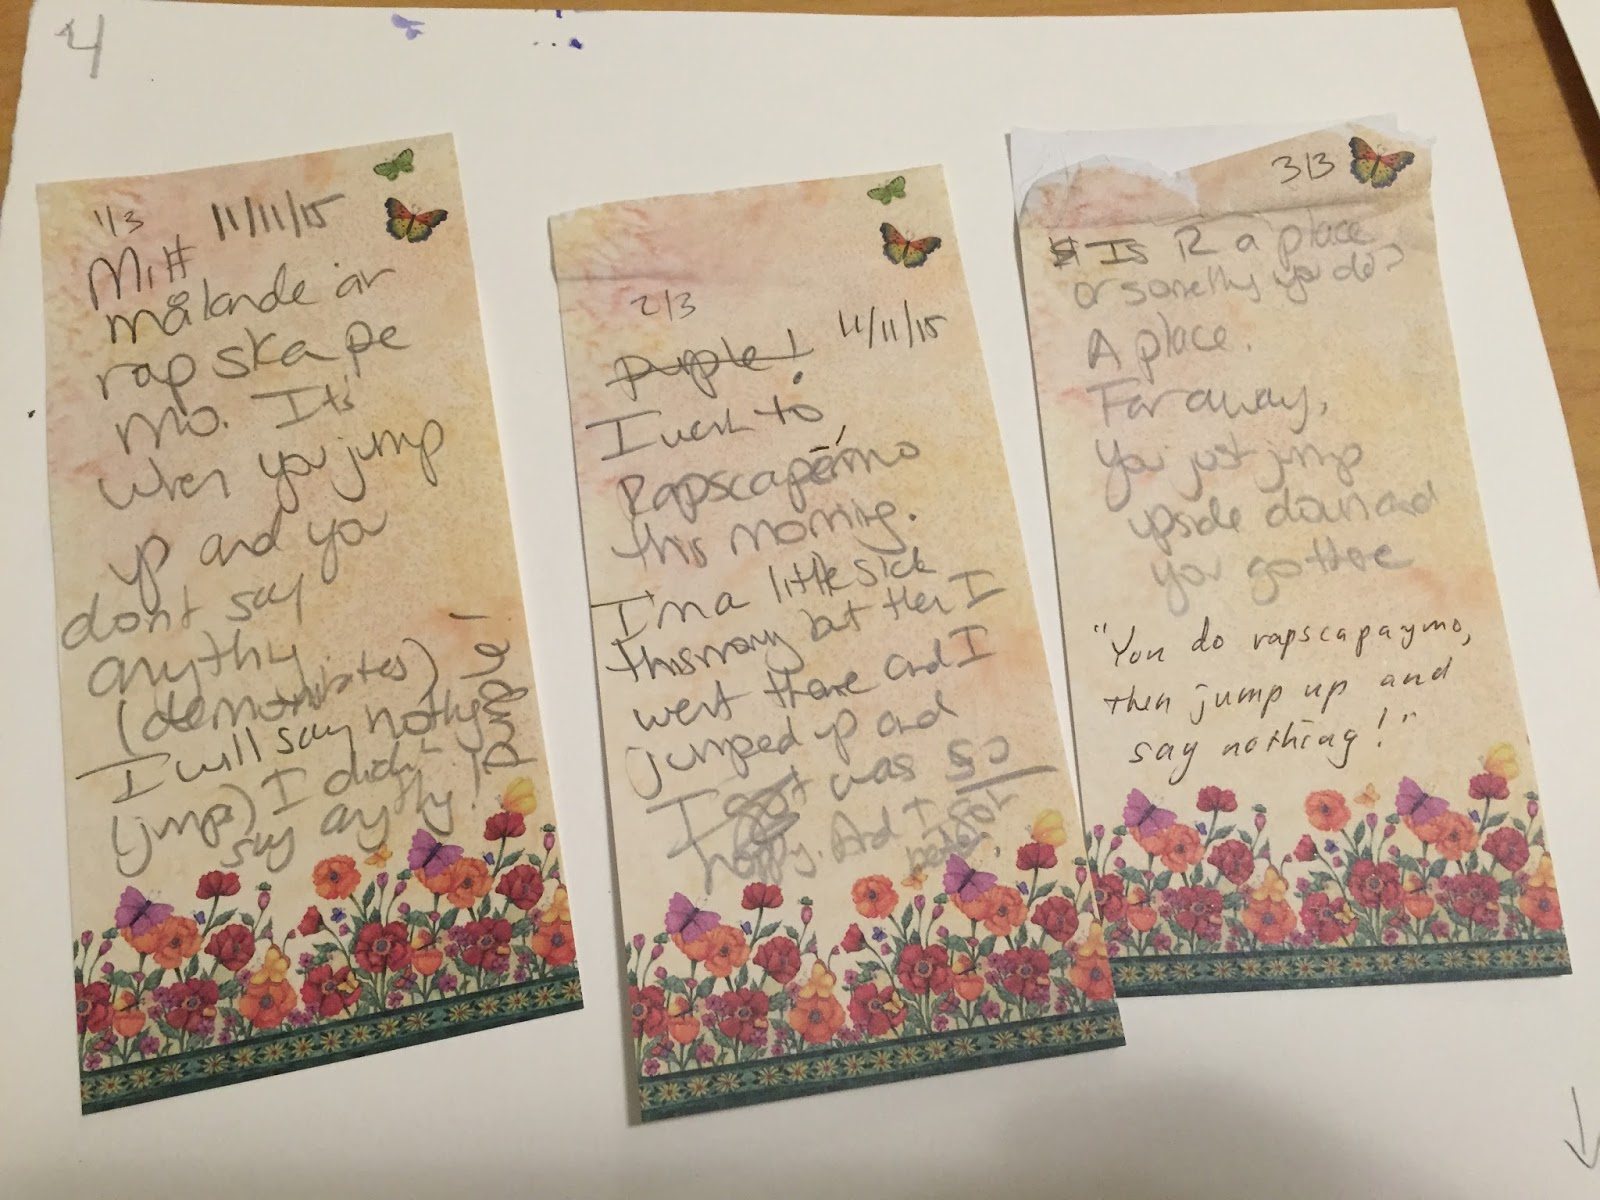 4
1/3 11/11/15
Mitt
målande är
rapskape
mo. It's
when you jump
up and you
dont say
anythy
(demonstrates)
I will say nothy
(jumps) I didn't
say anythy!
purple!
2/3
11/11/15
purple!
I went to
Rapscapémo
this morning.
I'm a little sick
this morny but then I
went there and I
jumped up and
I was so
happy. And I got
better.
3/3
Is R a place
or somethy you do?
A place.
Far away,
You just jump
upside down and
you go there
"You do rapscapaymo,
then jump up and
say nothing!"